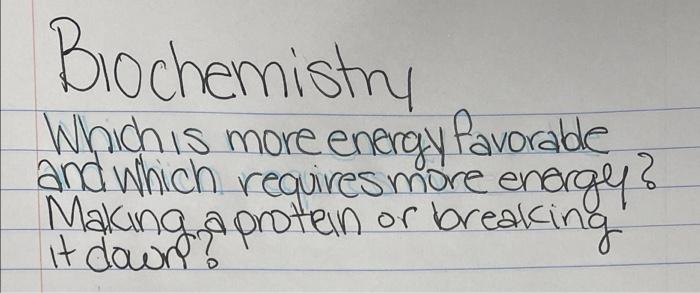 Biochemistry
Which is more energy favorable
and which requires more energy?
Making a protein or breaking
it down?